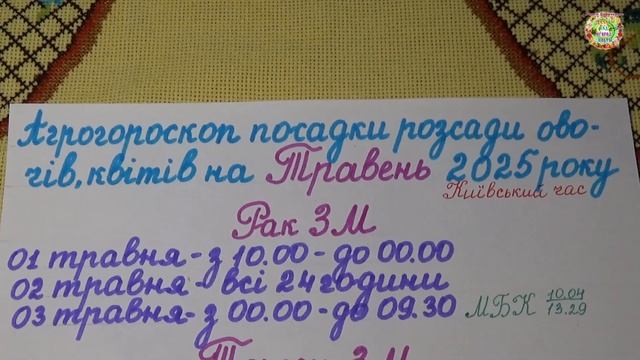 Агрогороскоп посадки розсади ово-
чів, квітів на Травень 2025 року
Київський час
Рак ЗМ
01 травня - з 10.00 - до 00.00
02 травня - всі 24 години
03 травня - з 00.00 - до 09.30 МБК 10.04
13.29